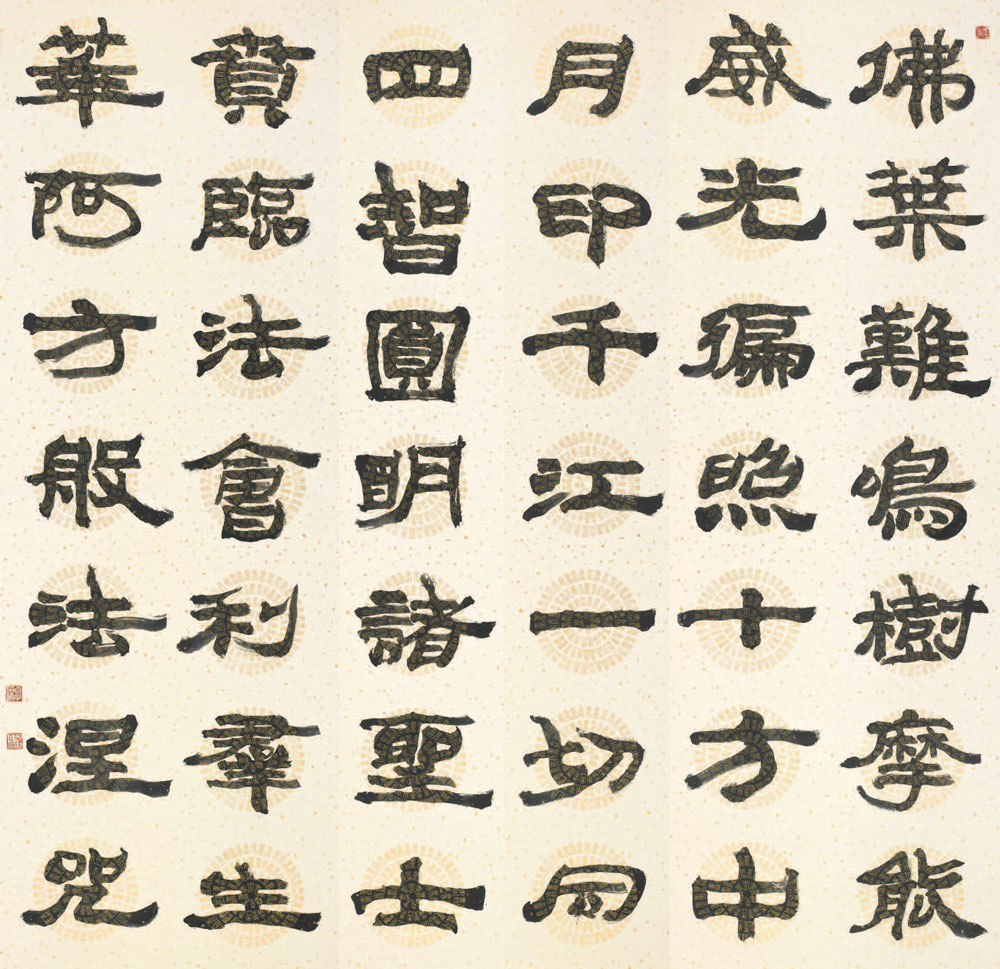 佛葉難鳴樹摩能
威光徧照十方中
月印千江一切同
四智圓明諸聖士
賁臨法會利羣生
華阿方般法涅咒